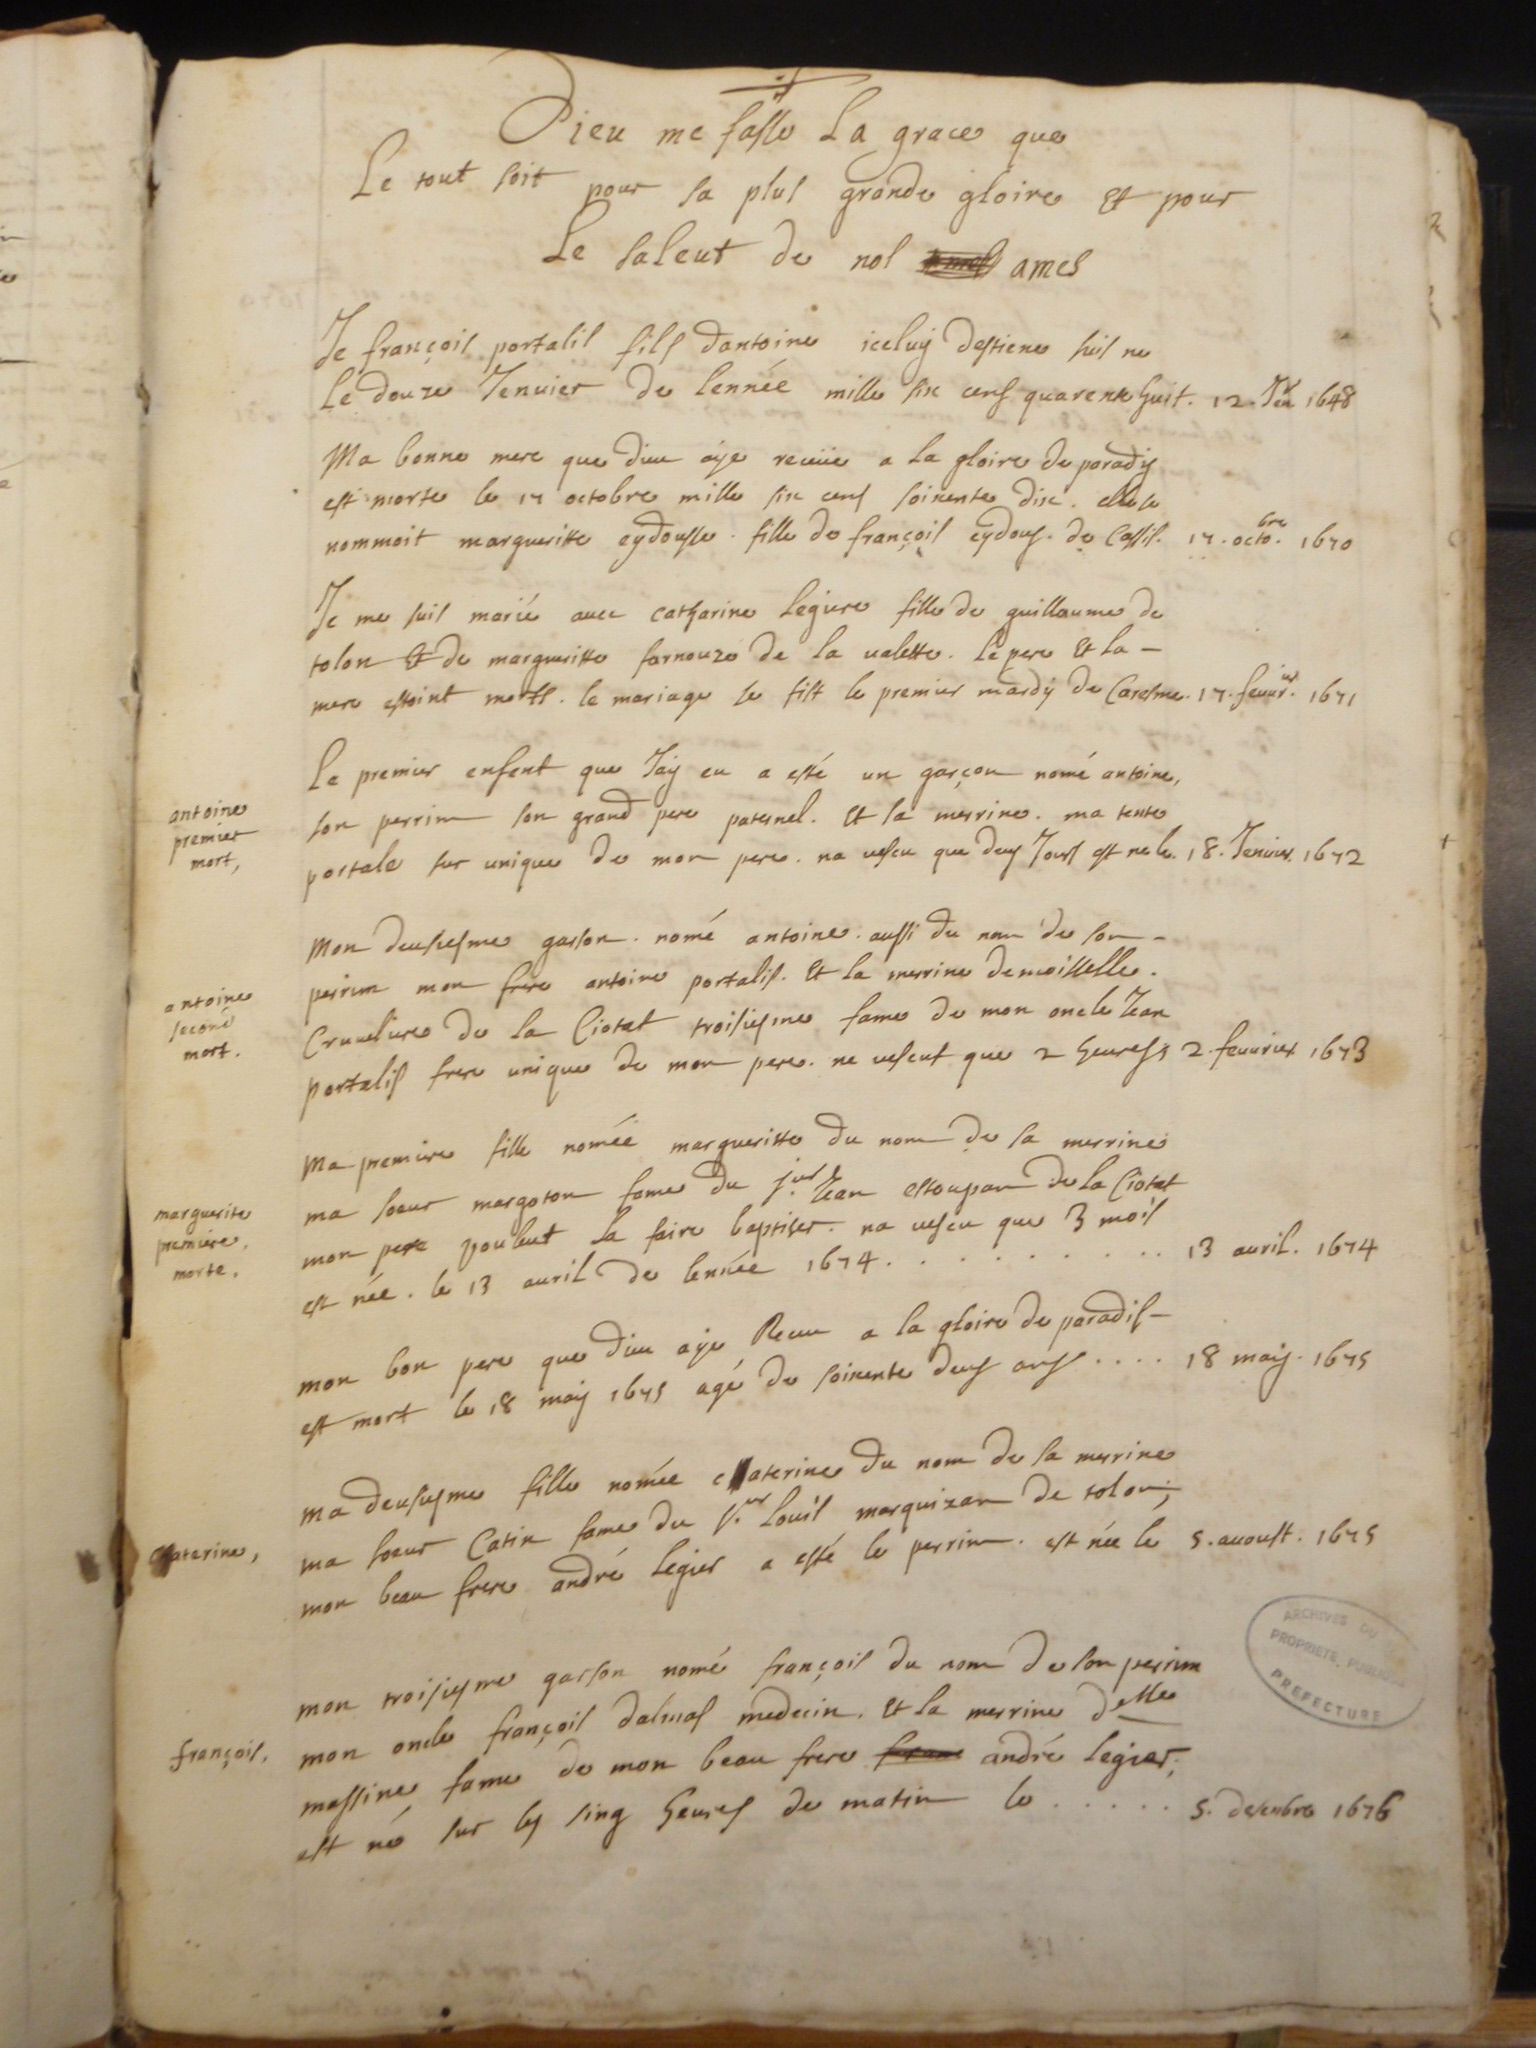 Dieu me fasse La grace que
Le tout soit pour sa plus grande gloire Et pour
Le saleut de nos ames
Je françois portalis fils dantoine iceluy destiene suis ne
Le douze Jenvier de lennée mille six cens quarente huit. 12. Jen 1648
Ma bonne mere que dieu aye receüe a la gloire de paradis
est morte le 17 octobre mille six cens soixente dix. elle se
nommoit margueritte eydousse. fille de françois eydous. de Cassis. 17. octobre. 1670
Je me suis marié avec catharine legiere fille de guillaume de
tolon Et de margueritte farnouze de la valette. Le pere Et la -
mere estoint morts. le mariage se fist le premier mardy de Caresme. 17. fevrier. 1671
antoine
premier
mort,
Le premier enfent que Jay eu a esté un garçon nomé antoine,
son perrin son grand pere paternel. Et sa merrine. ma tente
portale sur unique de mon pere. na vescu que deus Jours est ne le. 18. Jenvier. 1672
antoine
second
mort.
Mon deusiesme garson. nomé antoine. aussi du nom de son -
perrin mon frere antoine portalis. Et la merrine demoiselle.
Cruveliere de la Ciotat troisiesme fame de mon oncle Jean
portalis frere unique de mon pere. ne vescut que 2 heures 2. fevvrier 1673
marguerite
premiere.
morte.
Ma premiere fille nomée margueritte du nom de sa merrine
ma soeur margoton fame du sieur Jean estoupan de la Ciotat
mon pere voulut la faire baptiser. na vescu que 3 mois
est née. le 13 avril de lennée 1674. . . . . . . . . 13 avril. 1674
mon bon pere que dieu aye Receu a la gloire de paradis -
est mort le 18 may 1675 agé de soixente deus ans . . . . 18 may. 1675
Caterine,
ma deusiesme fille nomée Caterine du nom de sa merrine
ma soeur Catin fame du Sieur Louis marquizan de tolon;
mon beau frere andré legier a esté le perrin. est née le 5. avoust. 1675
françois.
mon troisiesme garson nomé françois du nom de son perrin
mon oncle françois dalmas medecin. Et la merrine delle
messine fame de mon beau frere andré legier;
est né sur les sinq heures de matin le . . . . . 5. desenbre 1676
ARCHIVES DU
PROPRIETE. PUBLIQUE
PREFECTURE